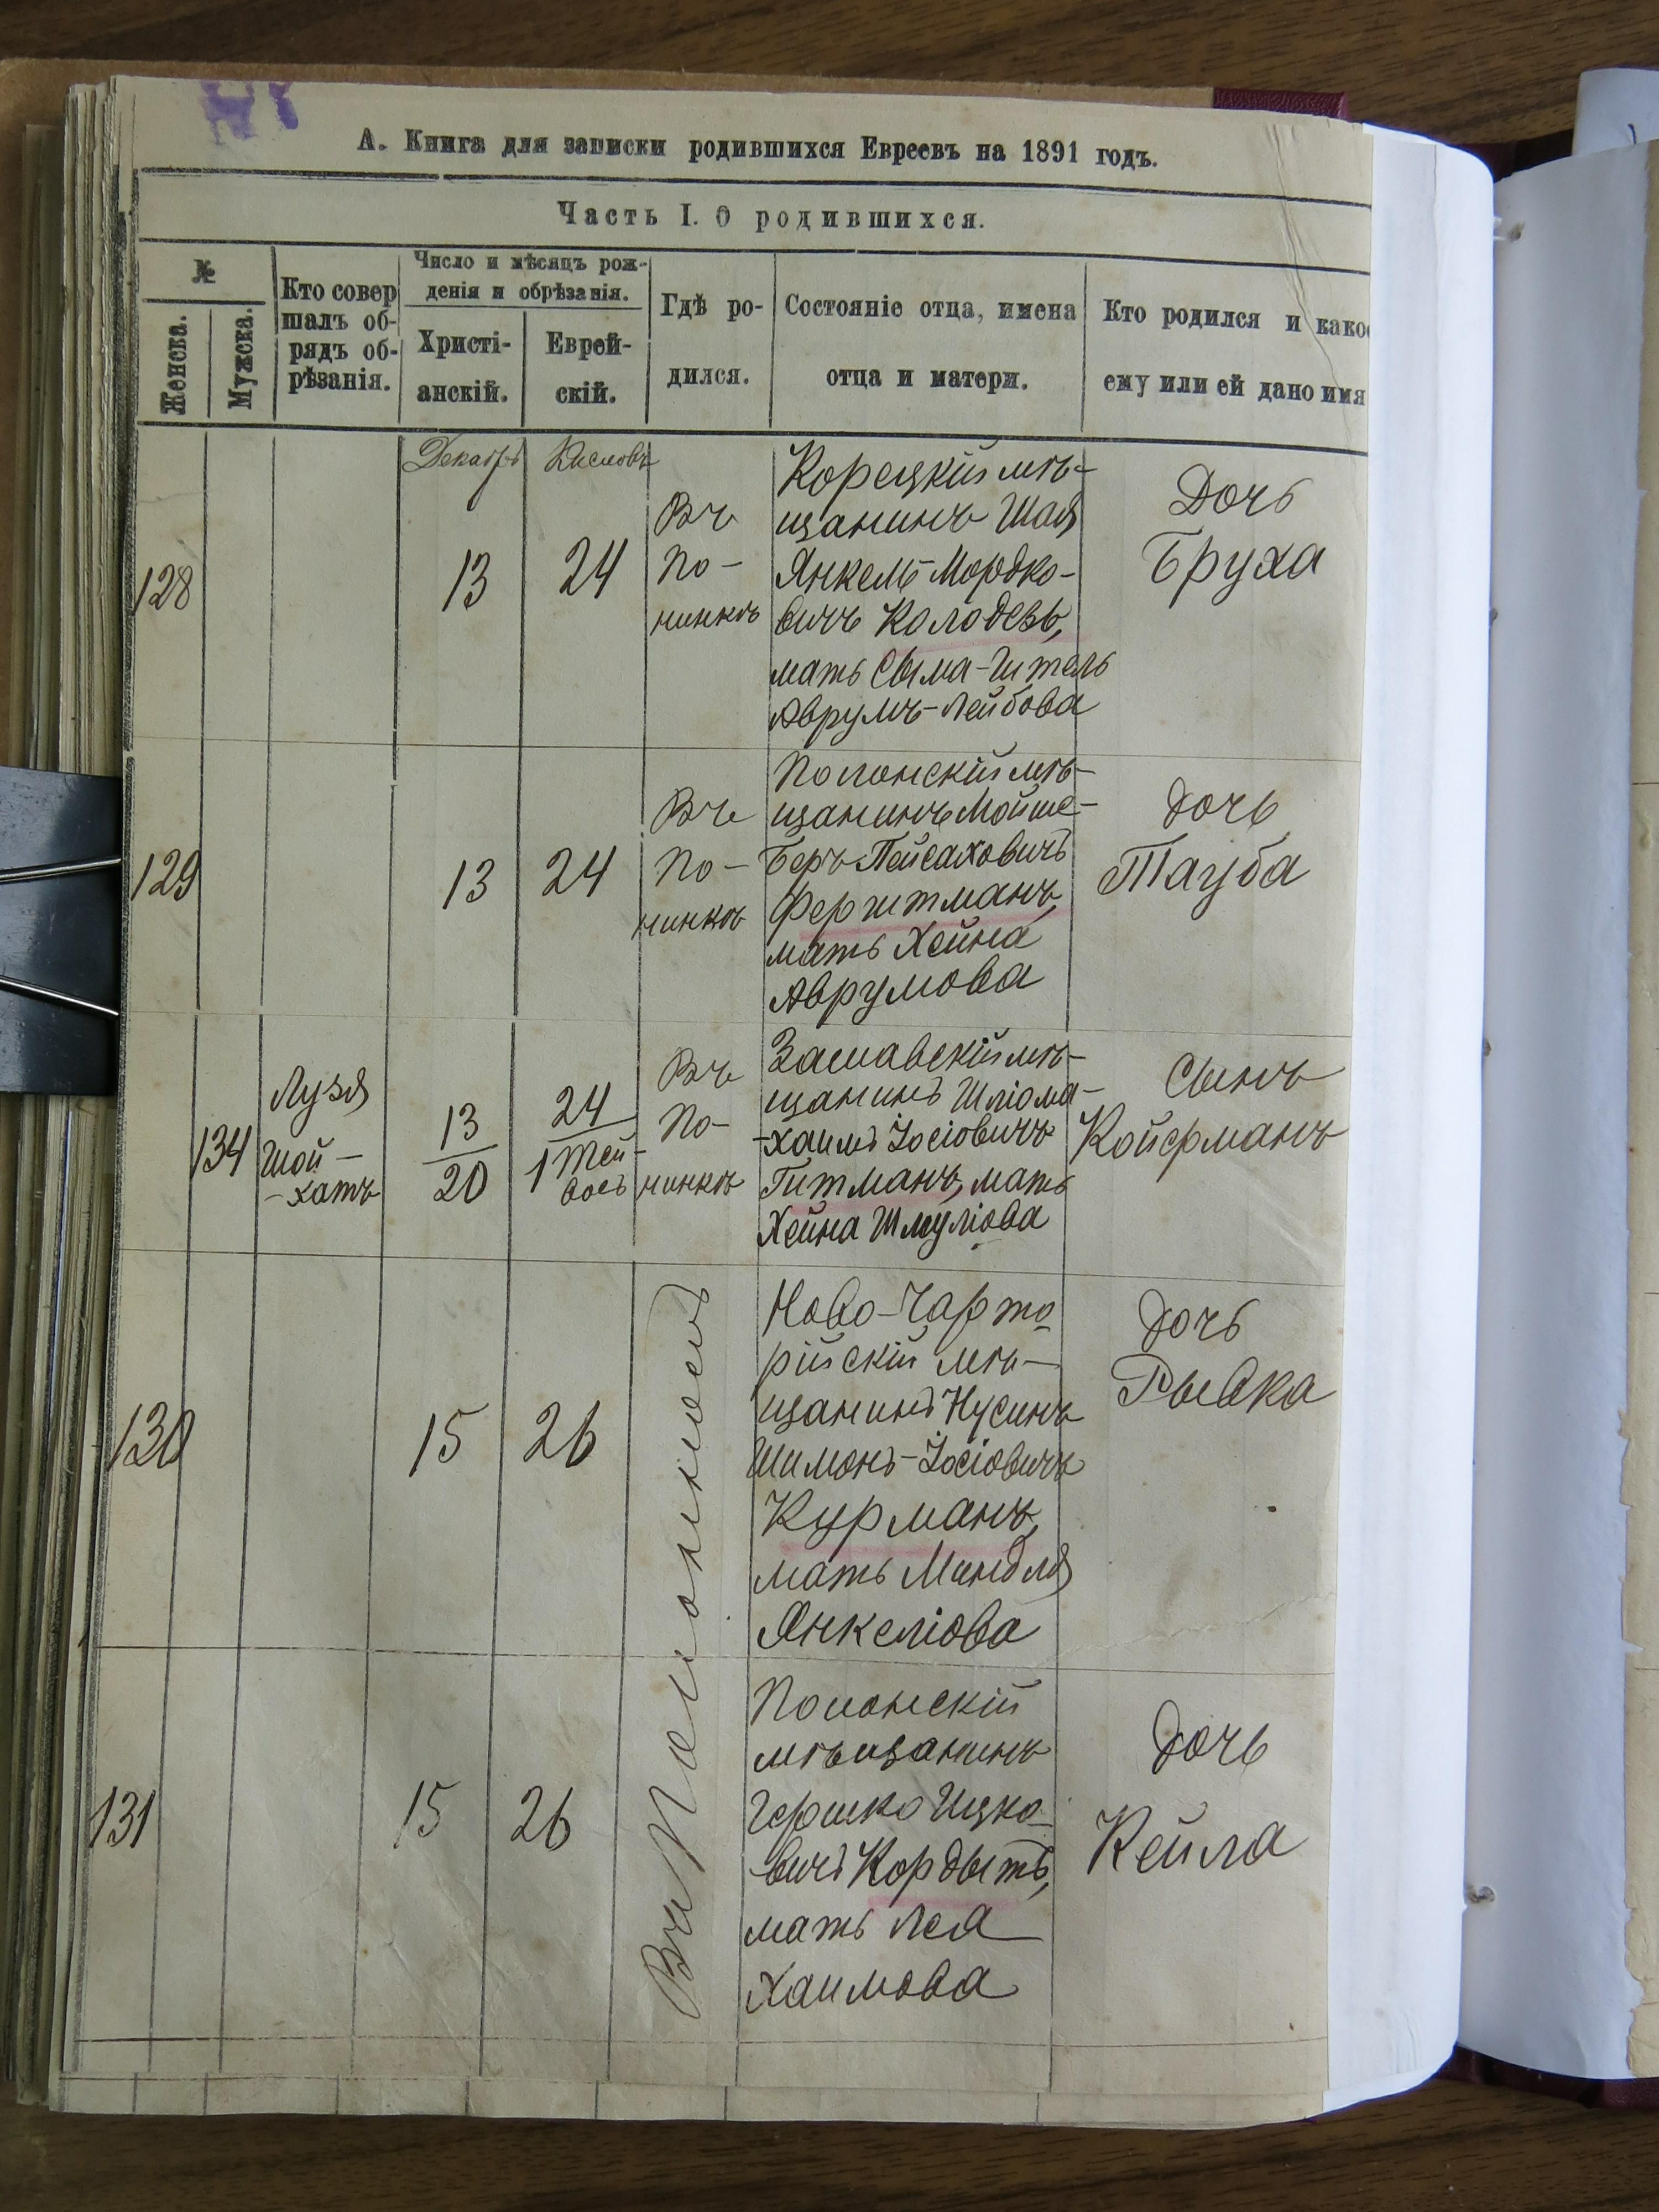 А. Книга для записки родившихся Евреевъ на 1891 годъ.
Часть I. О родившихся.
№
Женска.
Мужска.
Кто совер
шалъ об-
рядъ об-
рѣзанія.
Число и мѣсяцъ рож-
денія и обрѣзанія.
Христі-
анскій.
Еврей-
скій.
Гдѣ ро-
дился.
Состояніе отца, имена
отца и матери.
Кто родился и како
ему или ей дано имя
128
Декабрь
13
24
Въ
По-
нинкѣ
Корецкій мѣ-
щанинъ Шая
Янкель Мордко-
вичъ Колодезь,
мать Сыма-Гитель
Аврумъ-Лейбова
Дочь
Бруха
129
13
24
Въ
По-
нинкѣ
Полонскій мѣ-
щанинъ Мойше-
Беръ Пейсаховичъ
мать Хейна
Аврумова
Дочь
Тауба
134
Лузя
Шой-
-хатъ
13
20
24
1 Тей-
восъ
Въ
По-
нинкѣ
Заславскій мѣ-
щанинъ Шліома-
-Хаимъ Іосіовичъ
Гитманъ, мать
Хейна Шмуліова
Сынъ
Койфманъ
130
15
26
Въ Полонномъ
Ново-Чарто
рійскій мѣ-
щанинъ Нусинъ
Шимонъ-Іосіовичъ
Курманъ,
мать Миндля
Янкеліова
Дочь
Рывка
131
15
26
Полонскій
мѣщанинъ
Гершко Ицко-
вичъ Кордытъ,
мать Лея
Хаимова
Дочь
Кейла